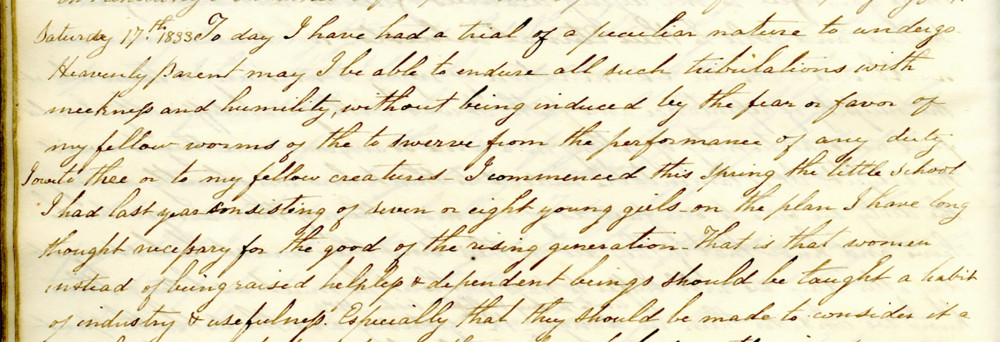 Saturday 17.th 1833 To day I have had a trial of a peculiar nature to undergo
Heavenly Parent may I be able to endure all such tribulations with
meekness and humility, without being induced by the fear or favor of
my fellow worms of the to swerve from the performance of any duty
I owe to thee or to my fellow creatures - I commenced this spring the little school
I had last year consisting of seven or eight young girls - on the plan I have long
thought necessary for the good of the rising generation - That is that women
instead of being raised helpless & dependent beings should be taught a habit
of industry & usefulness. Especially that they should be made to consider it a